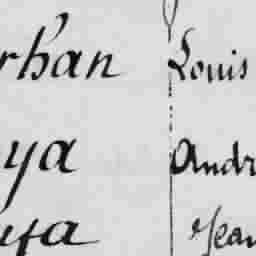 rhan Louis
ya Andr
ya Jean